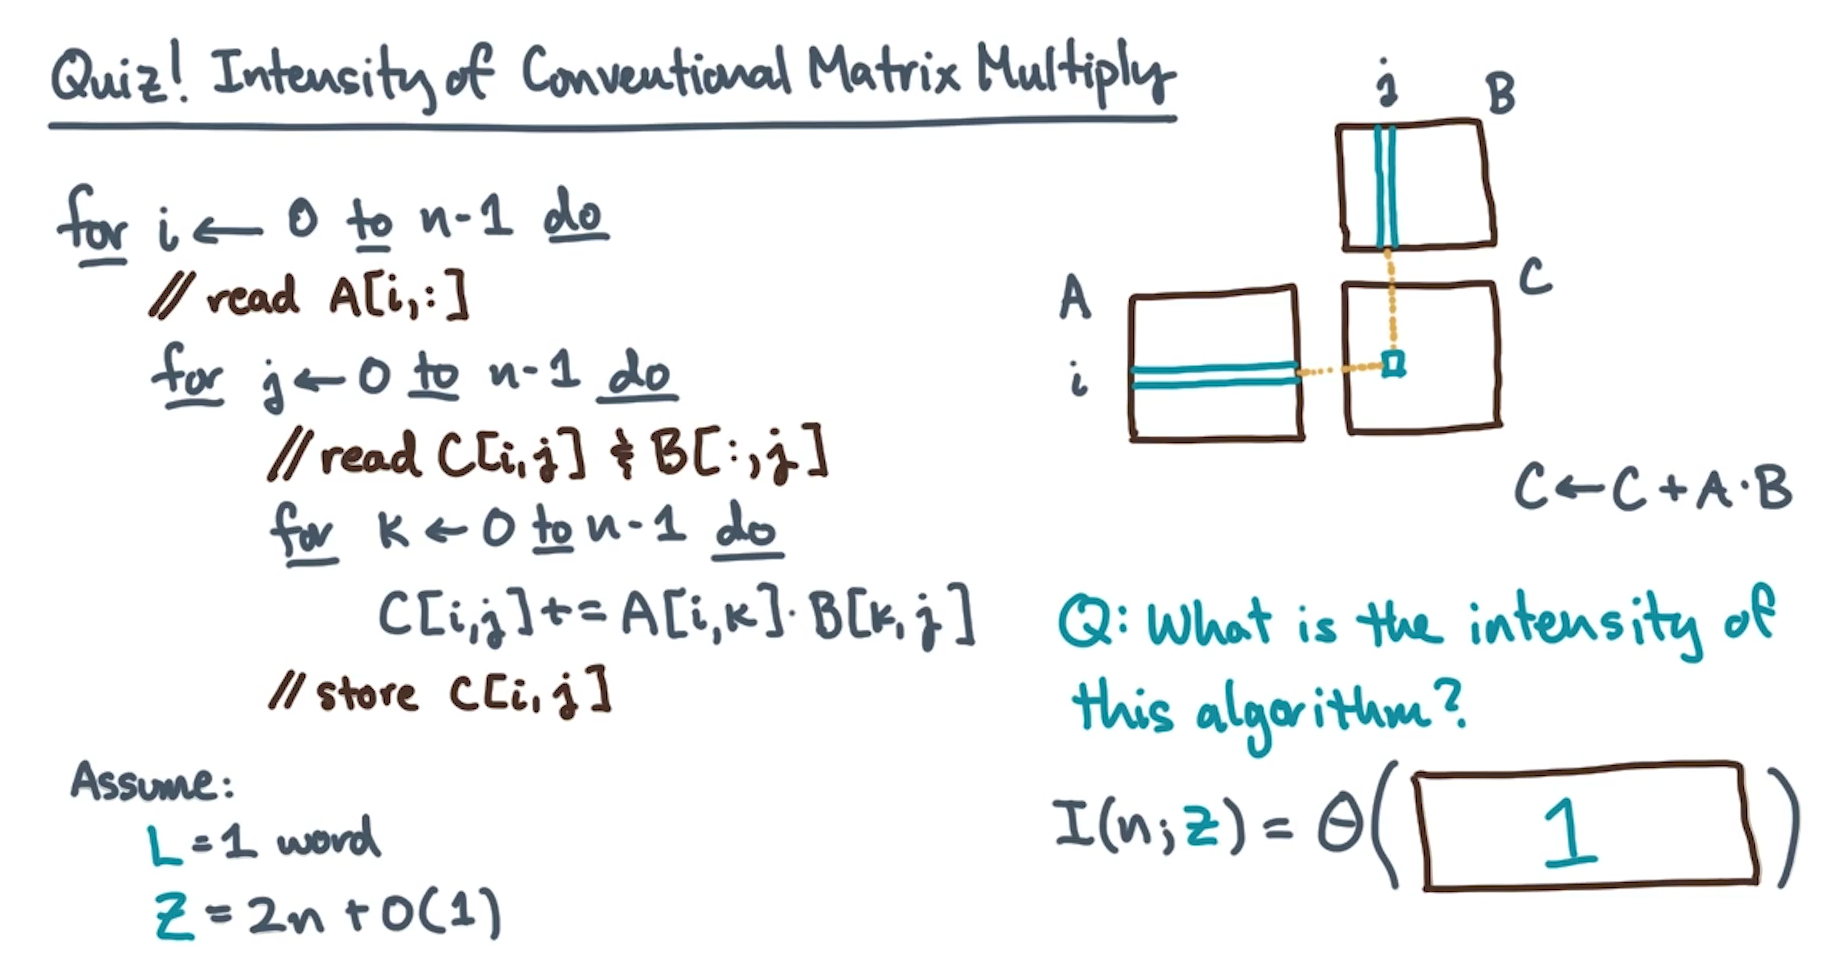 Quiz! Intensity of Conventional Matrix Multiply
for i ← 0 to n-1 do
// read A[i,:]
for j ← 0 to n-1 do
// read C[i,j] & B[:,j]
for k ← 0 to n-1 do
C[i,j] += A[i,k] · B[k,j]
// store C[i,j]
Assume:
L = 1 word
Z = 2n + O(1)
j
B
A
C
i
C ← C + A · B
Q: What is the intensity of
this algorithm?
I(n; Z) = Θ( 1 )